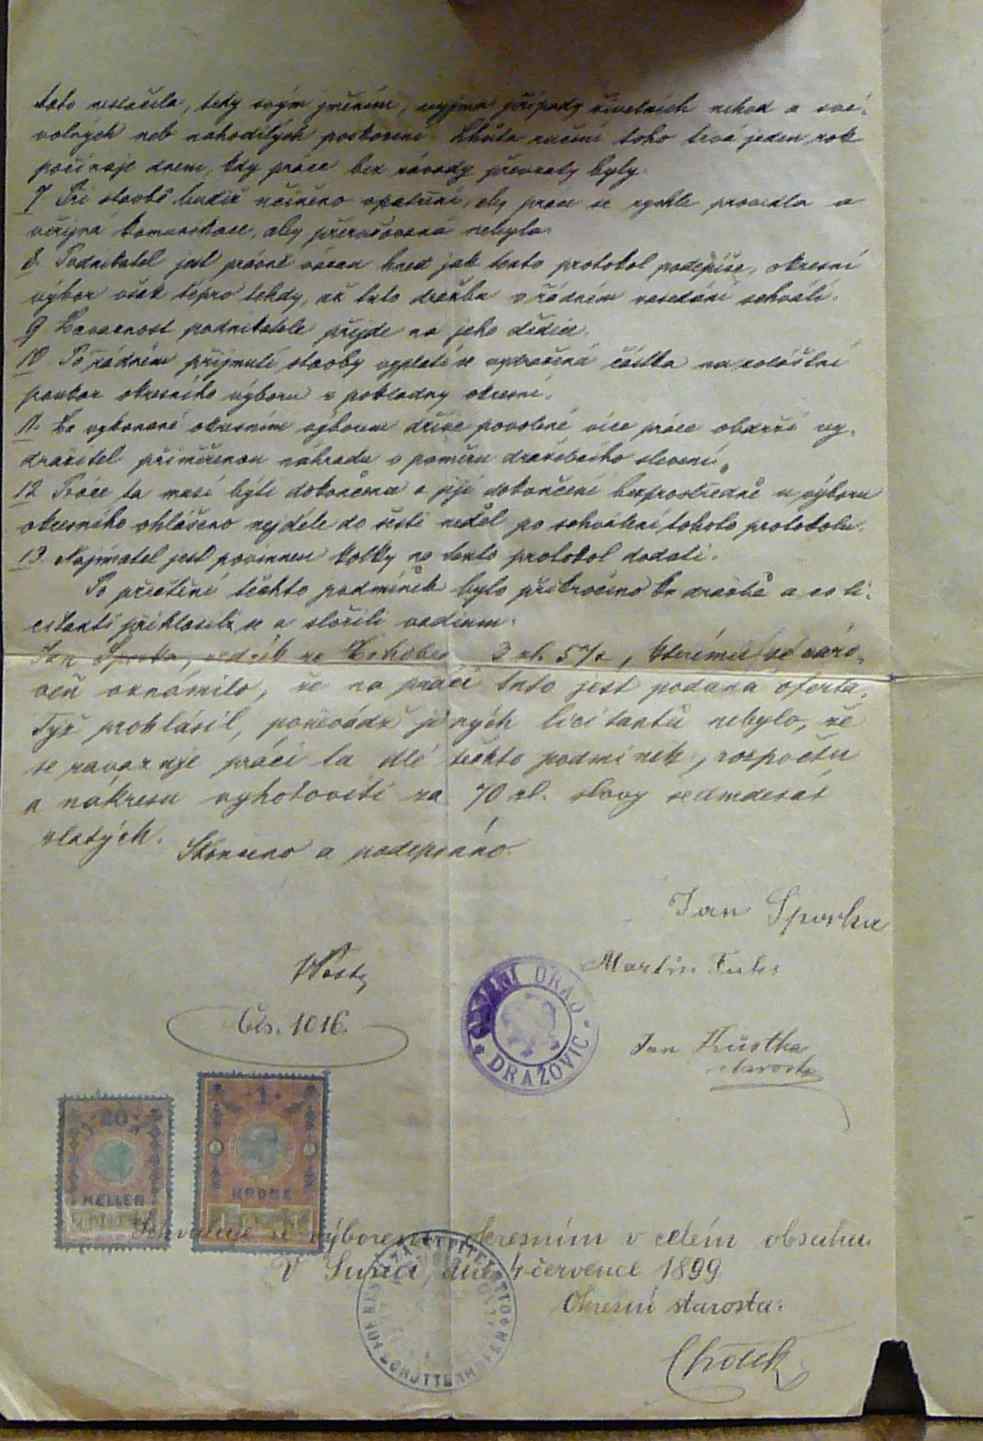 tato nestačila, tedy svým jměním, vyjma případy živelních nehod a své-
volných neb nahodilých poškození. Lhůta ručení toho trvá jeden rok
počínaje dnem, kdy práce bez závady převzaty byly.
7. Při stavbě budiž učiněno opatření, aby práce se rychle provedla a
veřejná komunikace, aby přerušována nebyla.
8. Podnikatel jest právně vázán hned jak tento protokol podepíše, okresní
výbor však teprv tehdy, až tuto dražbu v řádném zasedání schválí.
9. Závaznost podnikatele přejde na jeho dědice.
10. Po řádném přijmutí stavby vyplatí se vydražená částka na zvláštní
poukaz okresního výboru z pokladny okresní.
11. Za vykonané okresním výborem dříve povolené více práce obdrží vy-
dražitel přiměřenou náhradu v poměru dražebního slevení.
12. Práce ta musí býti dokončena a její dokončení bezprostředně u výboru
okresního ohlášeno nejdéle do šesti neděl po schválení tohoto protokolu.
13. Najímatel jest povinen kolky na tento protokol dodati.
Po přečtení těchto podmínek bylo přikročeno ku dražbě a co li-
citanti přihlásili se a složili vadium:
Jan Sporka, z 3 zl. 57k, kterémuž se záro-
veň oznámilo, že na práci tuto jest podána oferta.
Týž prohlásil, poněvadž jiných licitantů nebylo, že
se zavazuje práci ta dle těchto podmínek, rozpočtu
a nákresu vyhotoviti za 70 zl. slovy sedmdesát
zlatých.
Skončeno a podepsáno.
Jan Sporka
Martin Fuks
Čís. 1016.
DRAŽOVIC
Jan Hůstka
starosta
20
HELLER
1
KRONE
Schvaluje se výborem okresním v celém obsahu.
V Sušici, dne 4 července 1899
Okresní starosta: